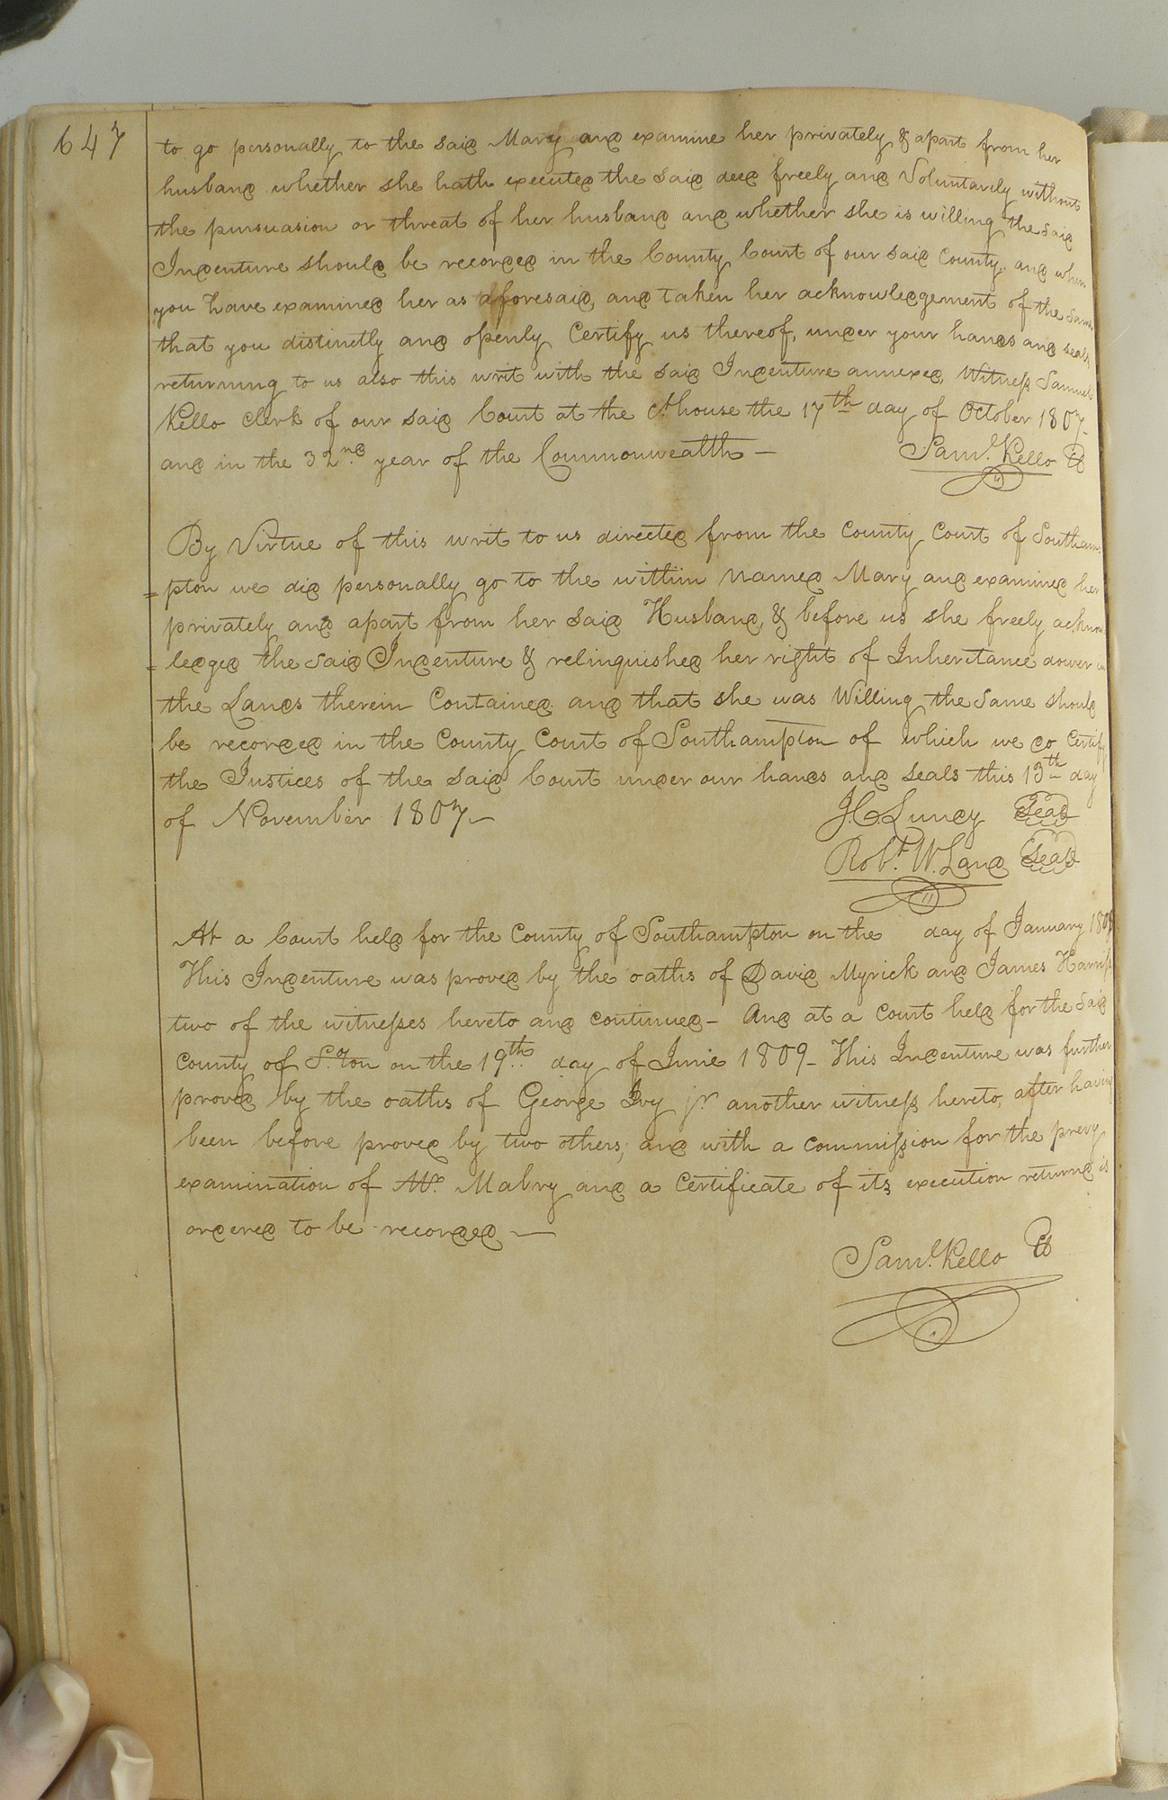 647
to go personally to the said Mary and examine her privately & apart from her
husband whether she hath executed the said deed freely and Voluntarily without
the pursuasion or threat of her husband and whether she is willing the said
Indenture should be recorded in the County Court of our said County, and when
you have examined her as aforesaid, and taken her acknowledgement of the same
that you distinctly and openly Certify us thereof, under your hands and seals
returning to us also this writ with the said Indenture annexed, Witness Samuel
Kello Clerk of our said Court at the Cthouse the 17th day of October 1807
and in the 32nd year of the Commonwealth —
Saml. Kello
By Virtue of this writ to us directed from the County Court of Southam
=pton we did personally go to the within named Mary and examined her
privately and apart from her said Husband, & before us she freely acknow
=ledged the said Indenture & relinquished her right of Inheritance dower in
the Lands therein Contained and that she was Willing the Same should
be recorded in the County Court of Southampton of which we do Certify
the Justices of the said Court under our hands and seals this 13th day
of November 1807—
Seal
Robt. W. Land Seal
At a Court held for the County of Southampton on the day of January 1808
This Indenture was proved by the oaths of David Myrick and James Harriss
two of the witnesses hereto and continued — And at a Court held for the said
County of S.ton on the 19th day of June 1809 — This Indenture was further
proved by the oaths of George Ivy jr another witness hereto, after having
been before proved by two others, and with a commission for the prevy
examination of Mabry and a Certificate of its execution returned is
ordered to be recorded —
Saml. Kello